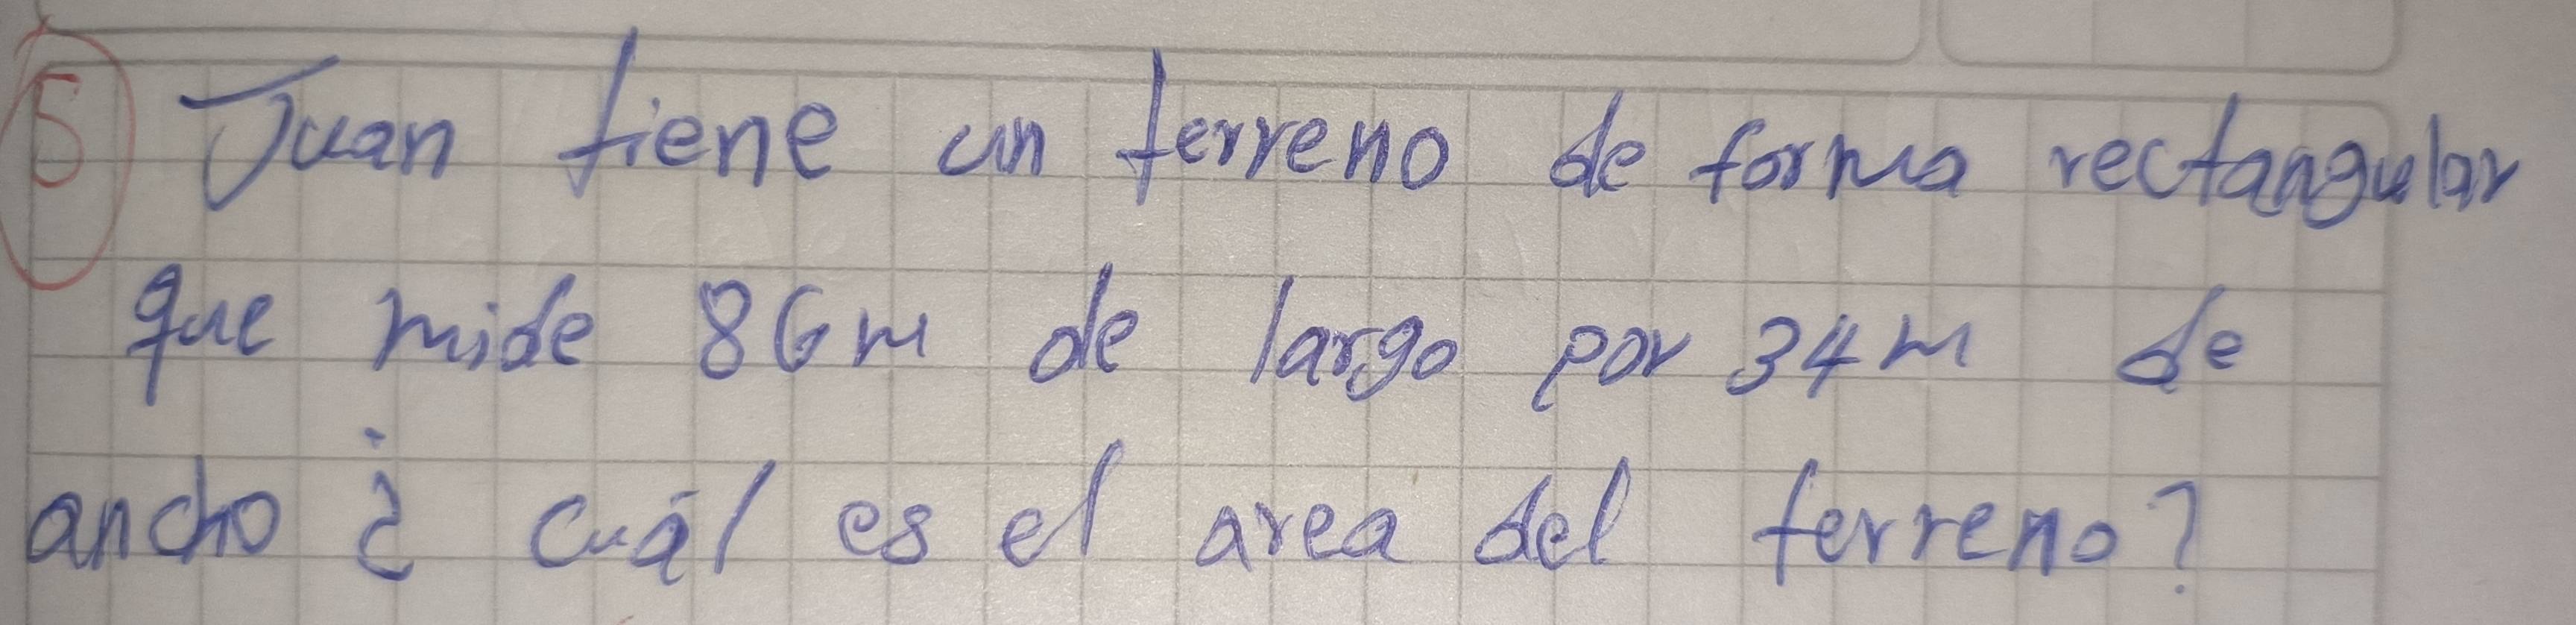 5 Juan tiene un terreno de forma rectangular
que mide 86m de largo por 34m de
ancho ¿ cuál es el area del terreno?